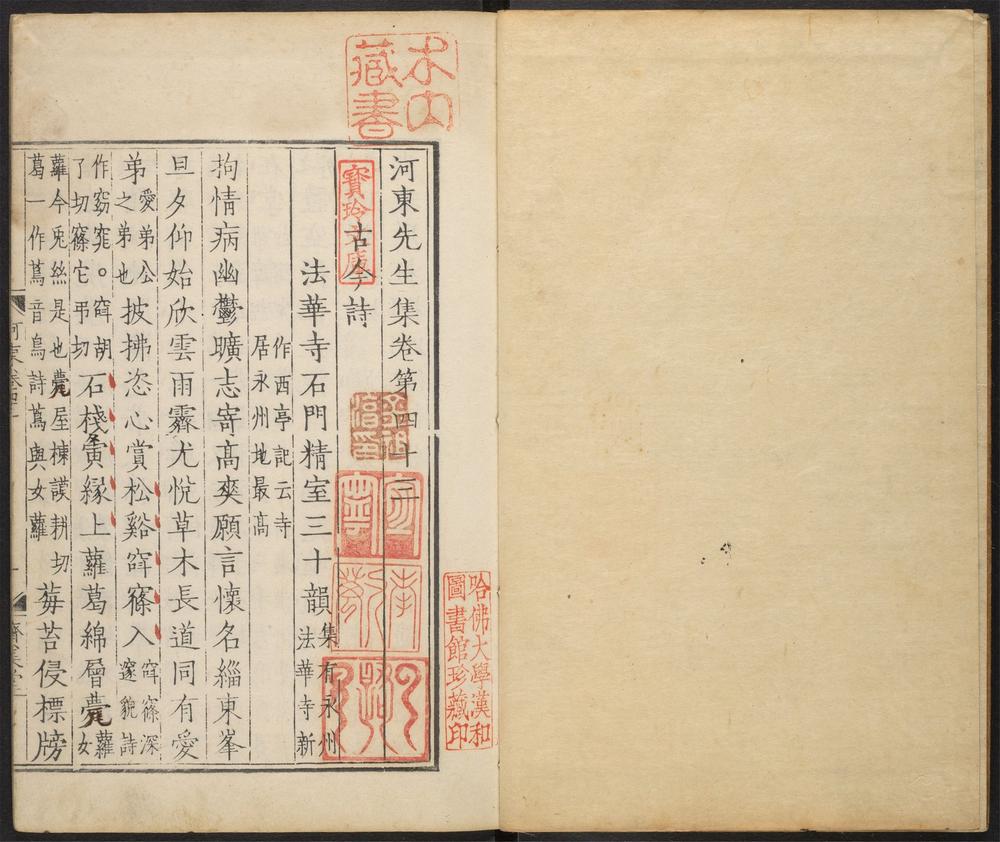 河東先生集卷第四十三
古今詩
法華寺石門精室三十韻 集有永州法華寺新
作西亭記云寺居永州地最高
拘情病幽鬱曠志寄高爽願言懷名緇東峯
旦夕仰始欣雲雨霽尤悅草木長道同有愛
弟 愛弟公之弟也 披拂恣心賞松谿窅窱入 窅窱深邃貌詩
作窈窕。窅胡了切窱它弔切 石棧夤緣上蘿葛綿層甍 蘿女
蘿今兎絲是也甍屋棟謨耕切葛一作蔦音鳥詩蔦與女蘿 莓苔侵標牓
木
藏書
寶玲文庫
哈佛大學漢和
圖書館珍藏印